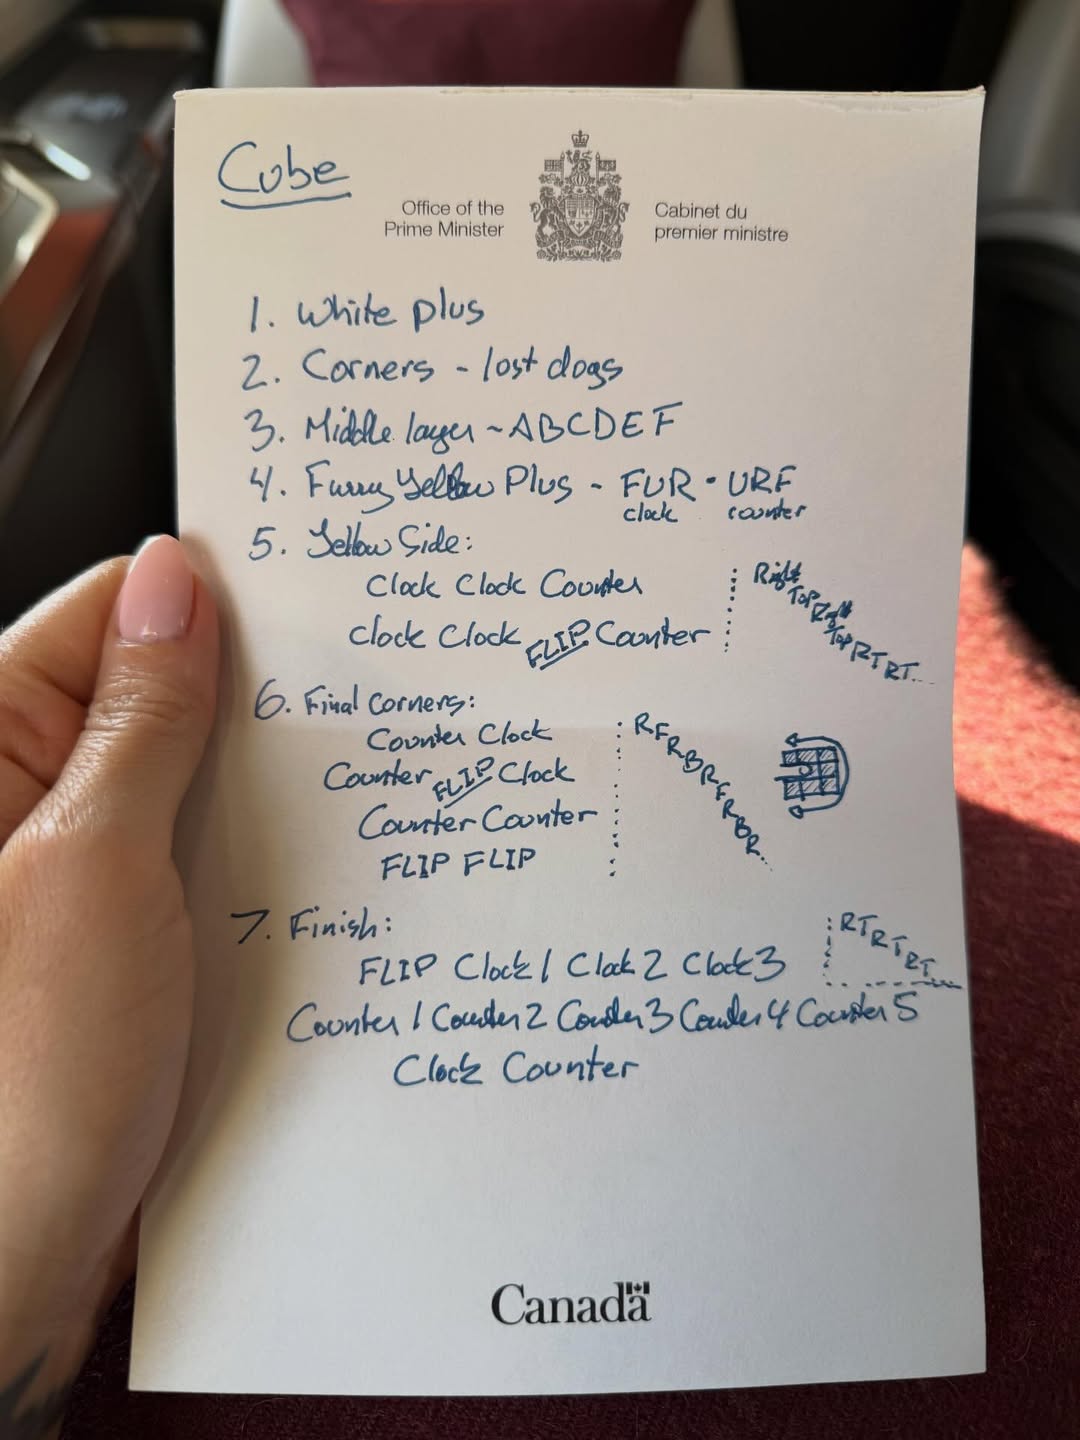 Cube
Office of the
Prime Minister
Cabinet du
premier ministre
1. White plus
2. Corners - lost dogs
3. Middle layer - ABCDEF
4. Furry Yellow Plus - FUR · URF
clock counter
5. Yellow Side:
Clock Clock Counter
Clock Clock FLIP Counter
Right
Top
Right
Top
R T R T...
6. Final Corners:
Counter Clock
Counter FLIP Clock
Counter Counter
FLIP FLIP
R F R B R F R B R..
7. Finish:
FLIP Clock 1 Clock 2 Clock 3
RT RT RT
Counter 1 Counter 2 Counter 3 Counter 4 Counter 5
Clock Counter
Canada